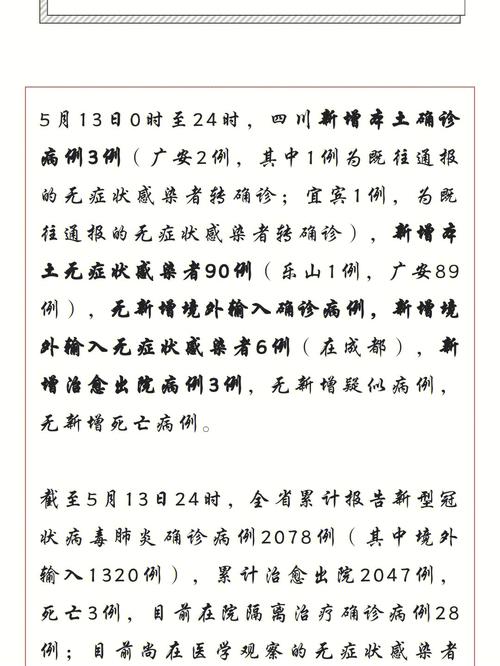 5月13日0时至24时，四川新增本土确诊
病例3例（广安2例，其中1例为既往通报
的无症状感染者转确诊；宜宾1例，为既
往通报的无症状感染者转确诊），新增本
土无症状感染者90例（乐山1例，广安89
例），无新增境外输入确诊病例，新增境
外输入无症状感染者6例（在成都），新
增治愈出院病例3例，无新增疑似病例，
无新增死亡病例。
截至5月13日24时，全省累计报告新型冠
状病毒肺炎确诊病例2078例（其中境外
输入1320例），累计治愈出院2047例，
死亡3例，目前在院隔离治疗确诊病例28
例；目前尚在医学观察的无症状感染者